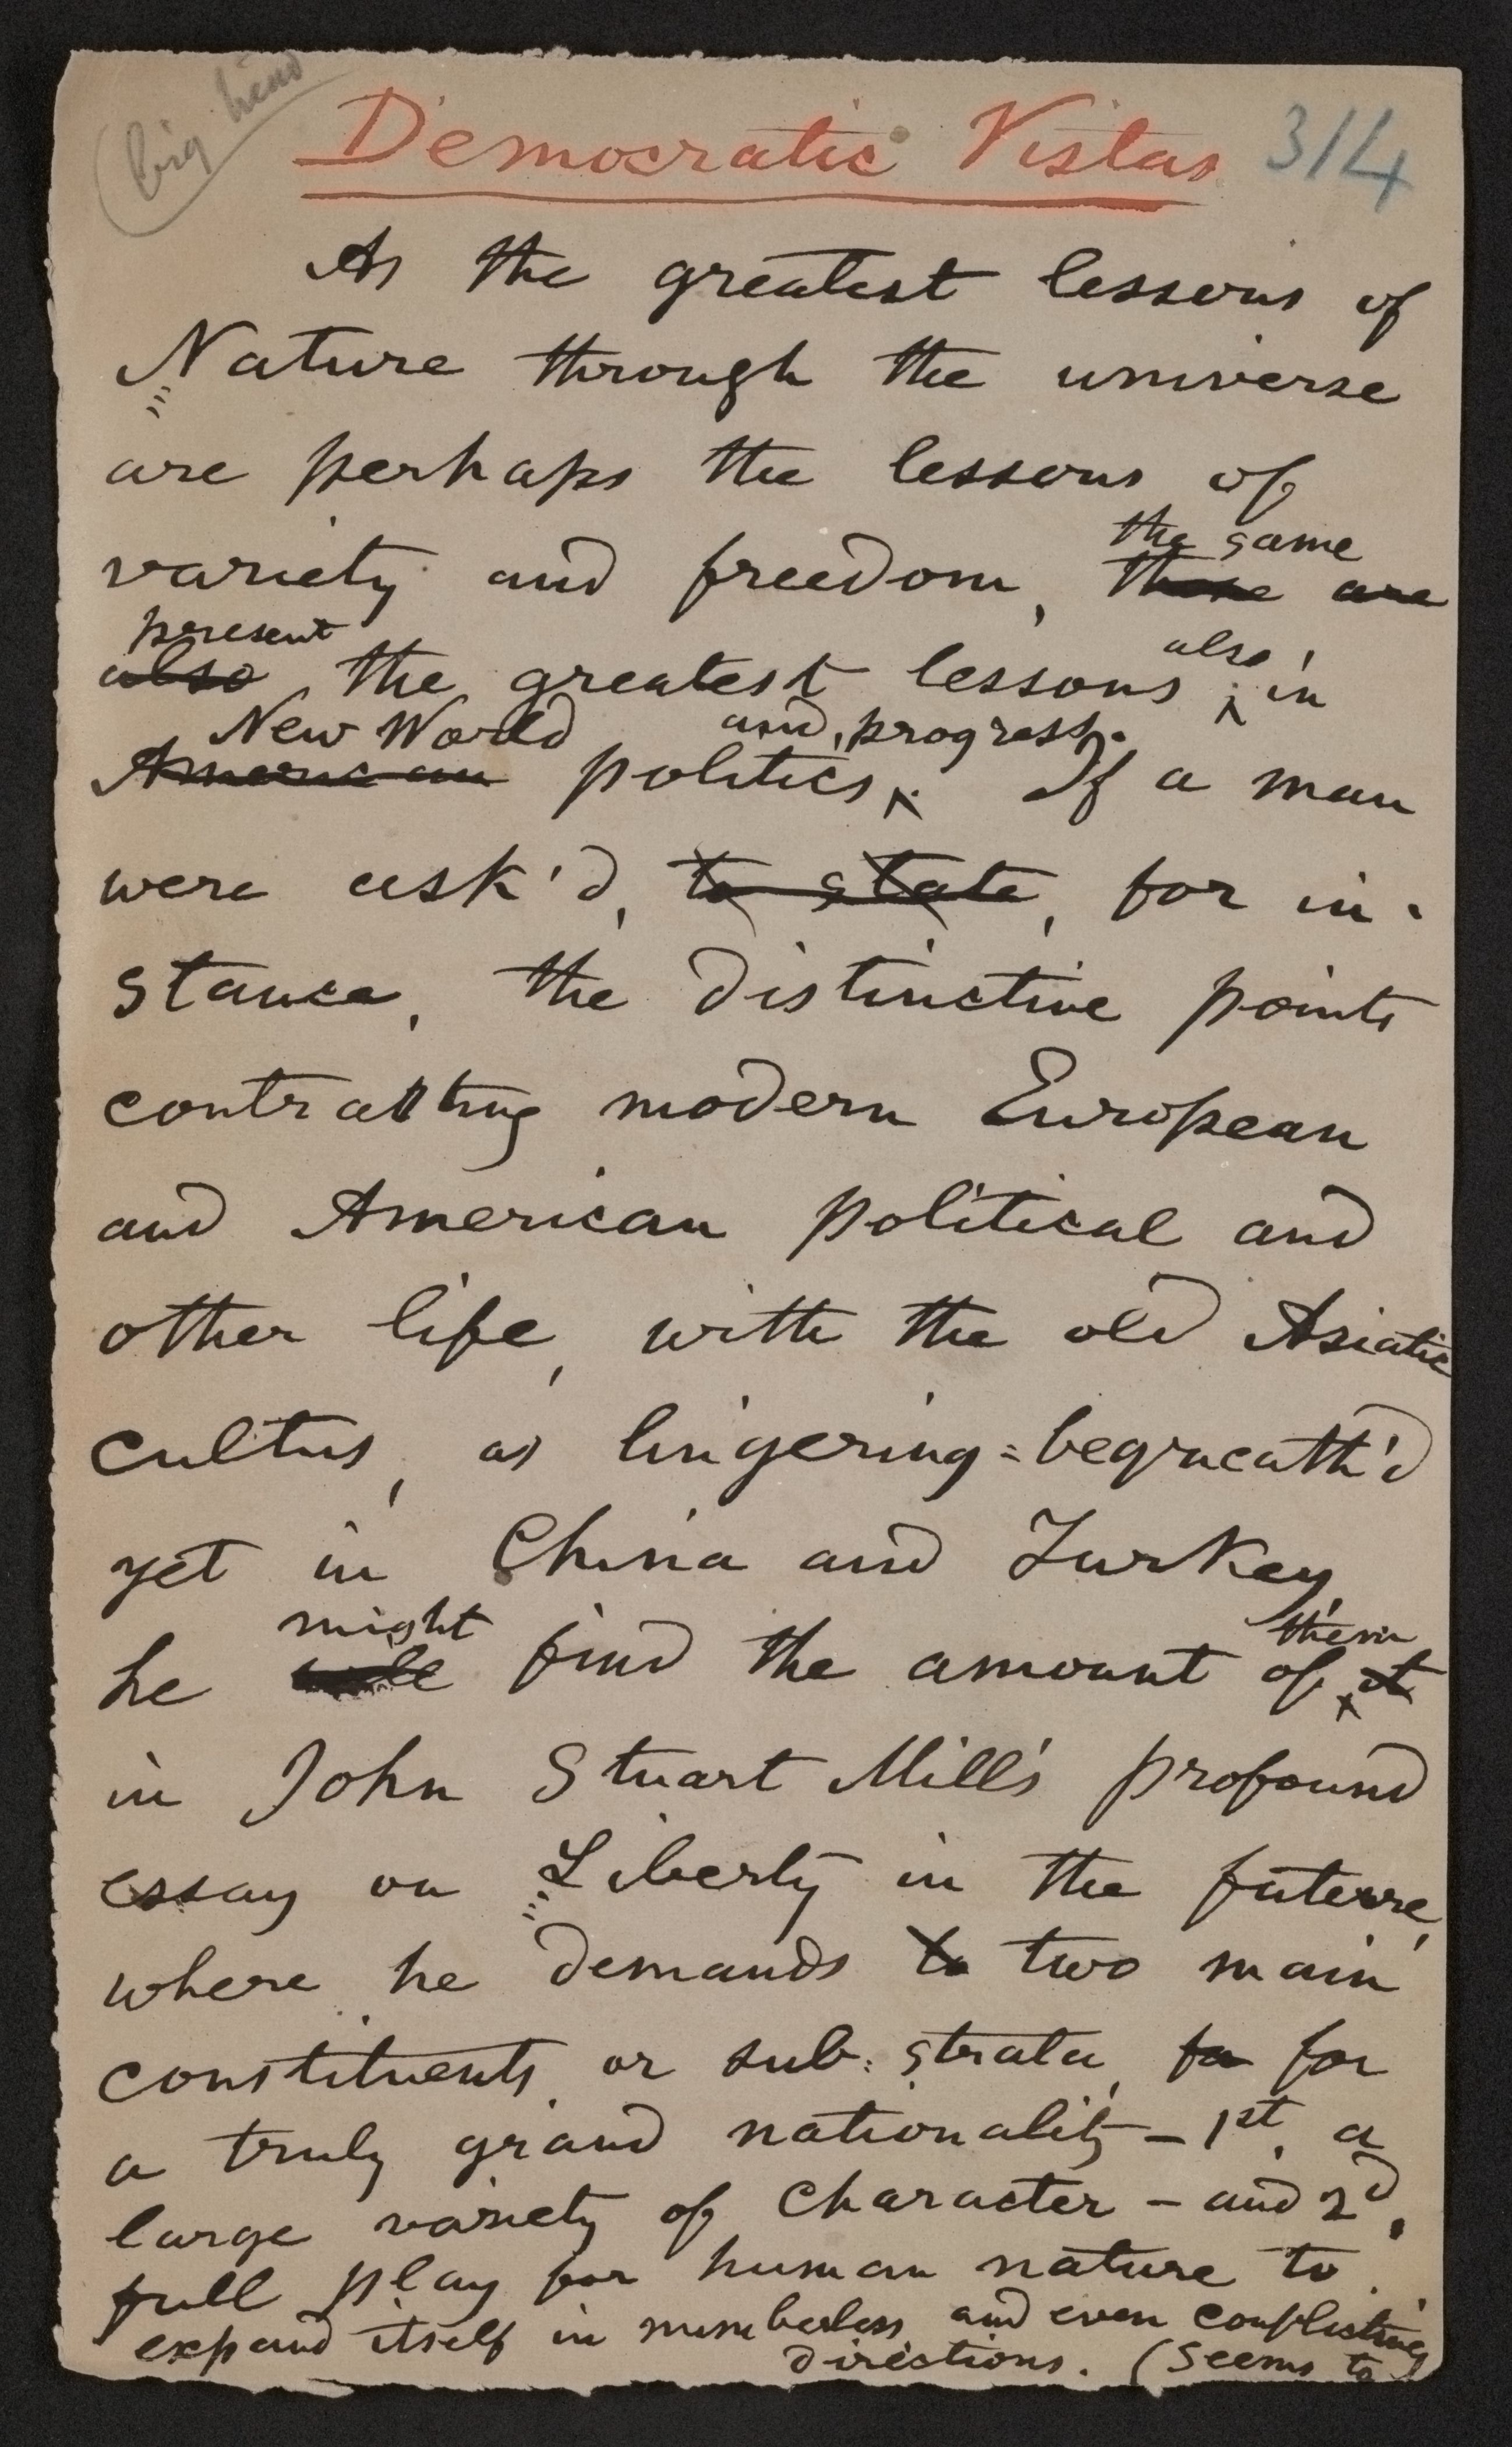 big head
Democratic Vistas 314
As the greatest lessons of
Nature through the universe
are perhaps the lessons of
the same
variety and freedom, these are
present also
also the greatest lessons, in
New World and progress.
American politics. If a man
were ask'd, to state, for in-
stance, the distinctive points
contrasting modern European
and American political and
other life, with the old Asiatic
cultus, as lingering-bequeath'd
yet in China and Turkey,
might them
he will find the amount of it
in John Stuart Mill's profound
essay on Liberty in the future,
where he demands to two main
constituents, or sub-strata, fo for
a truly grand nationality – 1st, a
large variety of character – and 2d,
full play for human nature to
expand itself in numberless and even conflicting
directions. (Seems to